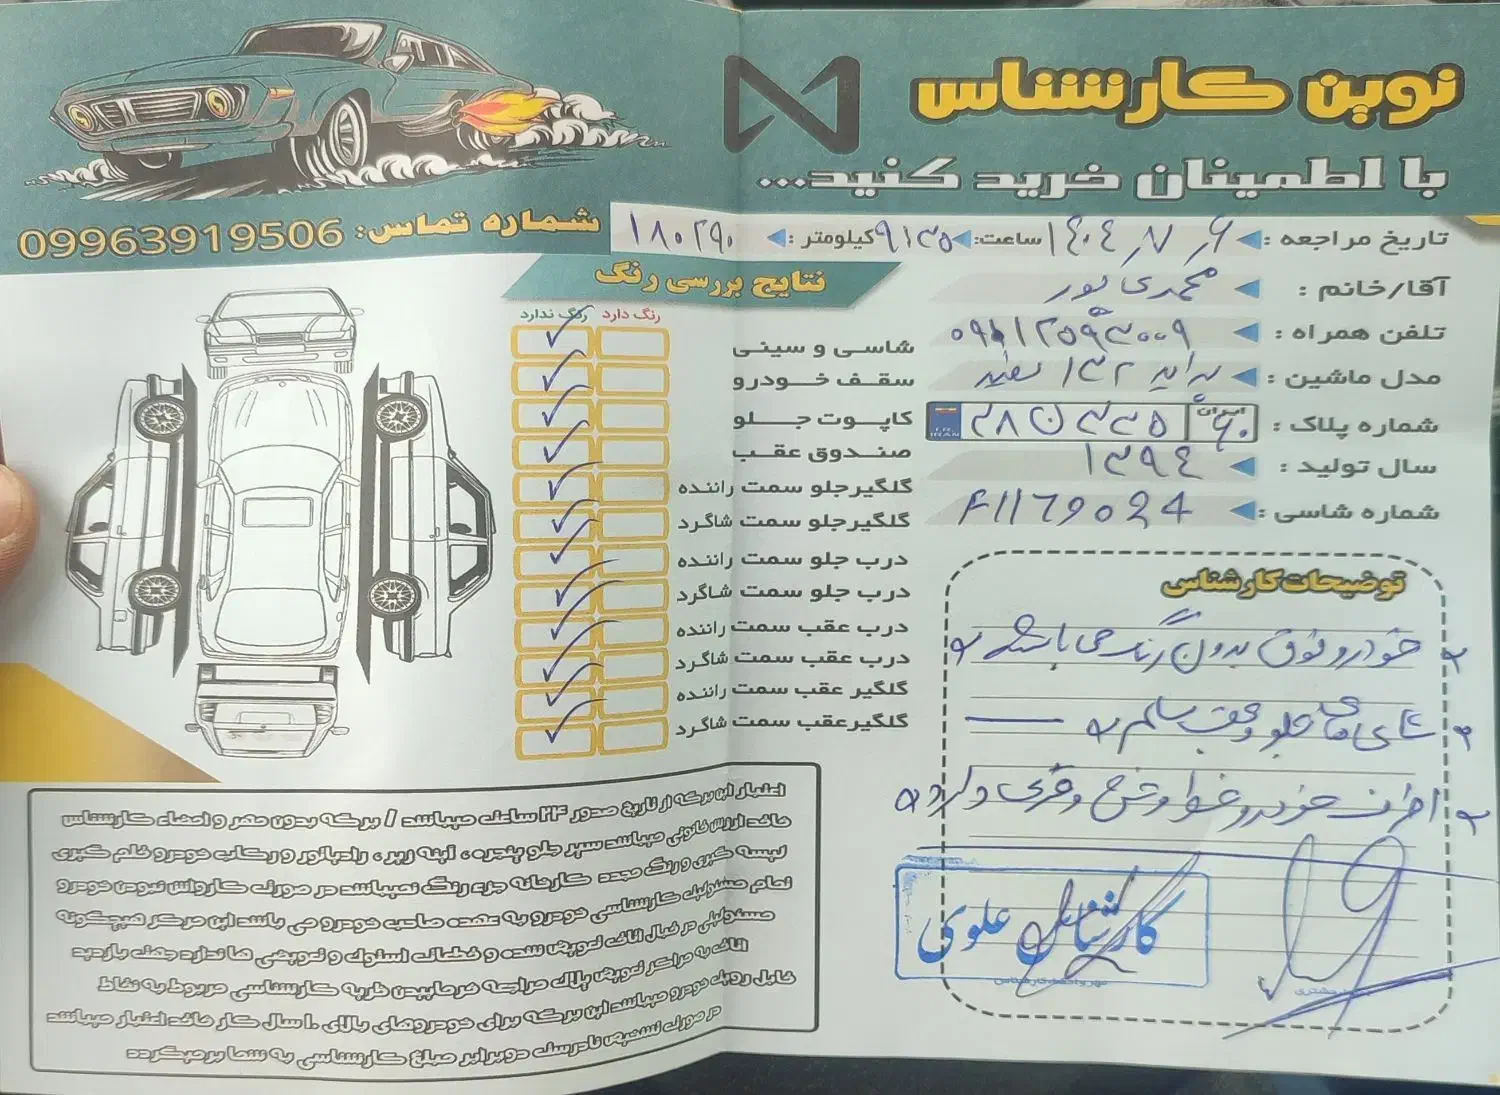 نوین کارشناس
با اطمینان خرید کنید...
شماره تماس: 09963919506
تاریخ مراجعه : ۱۴۰۴٫۷٫۶ ساعت: ۹۱۳۵ کیلومتر : ۱۸۰۲۹۰
آقا/خانم : محمدی پور
تلفن همراه :
مدل ماشین : پراید ۱۳۲ سفید
شماره پلاک : ۳۸ ن ۴۴۵ ایران ۶۰
I.R. IRAN
سال تولید : ۱۳۹۴
شماره شاسی :
نتایج بررسی رنگ
رنگ دارد رنگ ندارد
شاسی و سینی
سقف خودرو
کاپوت جلو
صندوق عقب
گلگیر جلو سمت راننده
گلگیر جلو سمت شاگرد
درب جلو سمت راننده
درب جلو سمت شاگرد
درب عقب سمت راننده
درب عقب سمت شاگرد
گلگیر عقب سمت راننده
گلگیر عقب سمت شاگرد
توضیحات کارشناس
خودرو فوق بدون رنگ می باشد
شاسی های جلو و عقب سالم
اطراف خودرو خط و خش و قری دارد
کارشناس علوی
مهر و امضا کارشناس
اعتبار این برگه از تاریخ صدور ۲۴ ساعت میباشد / برگه بدون مهر و امضاء کارشناس
فاقد ارزش قانونی میباشد سپر جلو پنجره ، آینه زیر ، رادیاتور و رکاب خودرو قلم گیری
لیسه گیری و رنگ مجدد کارخانه جزء رنگ نمیباشد در صورت کارواش نبودن خودرو
تمام مسئولیت کارشناسی خودرو به عهده صاحب خودرو می باشد این مرکز هیچگونه
مسئولیتی در قبال اتاق تعویض شده و قطعات استوک و تعویضی ها ندارد جهت بازدید
اتاق به مراکز تعویض پلاک مراجعه فرمایید
قابل رویت خودرو میباشد این برگه برای خودروهای بالای ۱۰ سال کار فاقد اعتبار میباشد
در صورت تشخیص نادرست دوبرابر مبلغ کارشناسی به شما برمیگردد